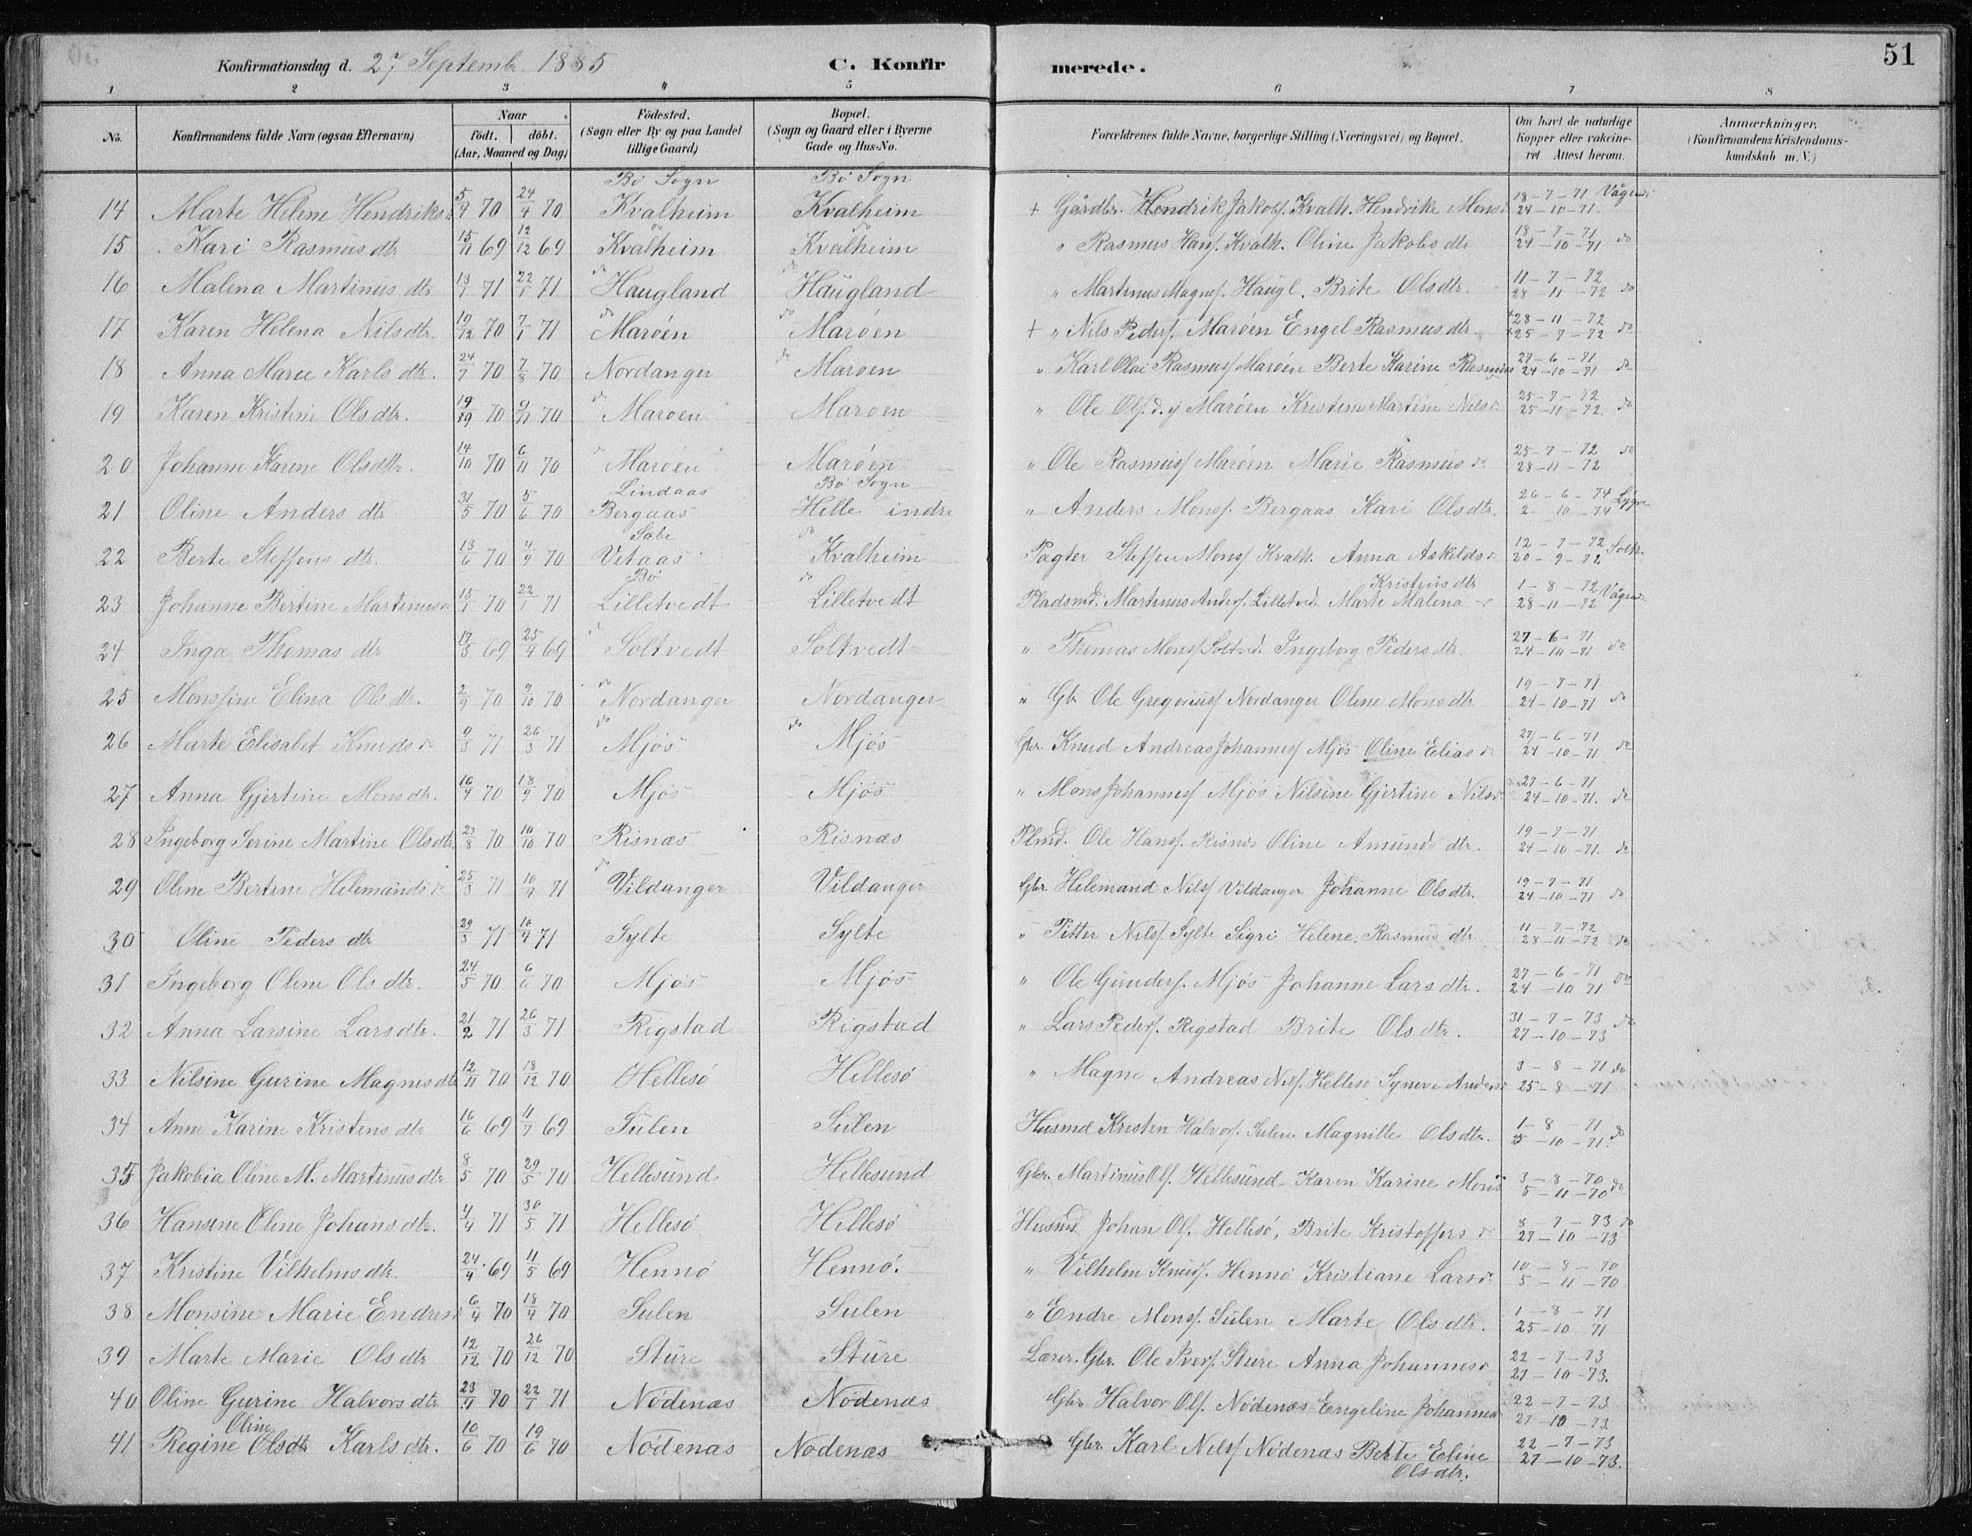 51
Konfirmationsdag d. 27 Septemb 1885 C. Konfirmerede.
1 2 3 4 5 6 7 8
No. Konfirmandens fulde Navn (ogsaa Efternavn) Naar født. døbt. (Aar, Maaned og Dag) Fødested. (Sogn eller By og paa Landet tillige Gaard) Bopæl. (Sogn og Gaard eller i Byerne Gade og Hus-No. Forældrenes fulde Navne, borgerlige Stilling (Næringsvei) og Bopæl. Om havt de naturlige Kopper eller vakcineret Attest herom. Anmærkninger. (Konfirmandens Kristendomskundskab m. V.)
Bø Sogn Bø Sogn
14 Marte Helene Hendriksd 5/4 70 24/4 70 Kvalheim Kvalheim + Gårdbr. Hendrik Jakobs. Kvalh. Hendrike Monsd 18-7-71 24-10-71.
15 Kari Rasmus dtr 15/11 69 12/12 69 do Kvalheim do Kvalheim " Rasmus Hans. Kvalh. Oline Jakobs dtr 18-7-71 24-10-71 do
16 Malena Martinus dtr 13/1 71 22/1 71 do Haugland do Haugland " Martinus Magnes. Haugl. Brite Olsdtr. 11-7-72 28-11-72 do
17 Karen Helena Nilsdtr. 19/12 70 7/1 71 do Marøen do Marøen + " Nils Peders. Marøen Engel Rasmusdtr. 28-11-72 25-7-72 do
18 Anna Marie Karls dtr. 24/7 70 7/8 70 Nordanger do Marøen " Karl Olai Rasmuss Marøen Berte Karine Rasmus 27-6-71 24-10-71 do
19 Karen Kristine Olsdtr. 19/ 70 /11 70 do Marøen Marøen " Ole Ols. d. y Marøen Kristine Martine Nilsd 25-7-72 25-11-72. do
20 Johanne Karine Olsdtr. 14/10 70 6/11 70 Marøen Marøen " Ole Rasmuss Marøen Marie Rasmus d 25-7-72 28-11-72 do
21 Oline Anders dtr 31/5 70 5/6 70 Lindaas Bergaas Bø Sogn Helle indre " Anders Mons. Bergaas Kari Olsdtr. 26-6-74 2-10-74 Lygre
22 Berte Steffens dtr 13/6 70 4/9 70 Sæbe Vetaas do Kvalheim Pagter Steffen Mons. Kvalh. Anna Askildsd 12-7-72 20-9-72
23 Johanne Bertine Martinusd 13/1 70 22/1 71 Bø Lilletvedt do Lilletvedt Pladsmd. Martinus Anders. Lilletved. Marte Malena Kristensdtr 1-8-72 28-11-72
24 Inga Thomas dtr 17/3 69 25/4 69 do Soltvedt Soltvedt " Thomas Mons. Soltvd. Ingeborg Peders dtr. 27-6-71 24-10-71 do
25 Monssine Elina Ols dtr. 2/9 70 9/10 70 do Nordanger Nordanger " Gbr Ole Gregoriuss Nordanger Oline Mons dtr 19-7-71 24-10-71 do
26 Marte Elisabet Knuds d 9/3 71 26/3 71 do Mjøs do Mjøs Gbr. Knud Andreas Johanness Mjøs Oline Elias d 27-6-71 24-10-71 do
27 Anna Gjertine Mons dtr. 16/4 70 18/9 70 Mjøs Mjøs " Mons Johanness Mjøs Nilsine Gjertine Nilsd 27-6-71 24-10-71. do
28 Ingeborg Serine Martine Olsdtr 27/8 70 10/10 70 Risnæs Risnæs Plmd. Ole Hans. Risnæs Oline Amunds dtr. 19-7-71 24-10-71. do
29 Oline Bertine Helemunds d 25/3 71 16/4 71 do Vildanger Vildanger Gbr. Helemand Nilss Vildanger Johanne Olsdtr. 19-7-71 24-10-71 do
30 Oline Peders dtr 29/3 71 16/4 71 Sylte Sylte " Pitter Nils. Sylte Sigri Helene Rasmus dtr. 11-7-72 28-11-72 do
31 Ingeborg Oline Ols dtr. 24/5 70 6/6 70 Mjøs Mjøs " Ole Gunders. Mjøs Johanne Lars dtr. 27-6-71 24-10 71 do
32 Anna Larsine Larsdtr. 21/2 71 26/3 71 Rigstad Rigstad " Lars Peders. Rigstad Brite Olsdtr. 31-7-73 27-10-73 do
33 Nilsine Gurine Magnesdtr 12/11 70 18/12 70 Hellesø Hellesø " Magne Andreas Nils. Hellesø Syneve Andersd 3-8-71 25-8-71 do
34 Anne Karine Kristens dtr 16/6 69 11/7 69 Sulen Sulen Husmd Kristen Halvors. Sulen Magnille Olsdtr. 1-8-71 25-10-71. do
35 Jakobia Oline M. Martinusdtr 8/5 70 29/5 70 Hellesund Hellesund Gbr. Martinus Ols. Hellesund Karen Karine Monsd 3-8-70 5-11-70 do
36 Hansine Oline Johans dtr. 4/4 71 30/5 71 Hellesø Hellesø Husmd Johan Ols. Hellesø, Brite Kristoffers d 8-7-73 27-10-73 do
37 Kristine Vilhelmsdtr. 24/4 69 11/5 69 Hennø Hennø. " Vilhelm Knuds. Hennø Kristiane Larsd. 10-8-70 5-11-70
38 Monsine Marie Endresd 6/4 70 18/4 70 Sulen Sulen " Endre Mons. Sulen Marte Olsdtr. 1-8-71 25-10 71
39 Marte Marie Olsdtr 12/12 70 26/12 70 Sture Sture Lærer. Gbr. Ole Ivers. Sture Anna Johannesd 22-7-73 27-10-73.
40 Oline Gurine Halvorsdtr 23/ 70 22/1 71 Nødenæs Nødenæs Gbr Halvor Ols. Nødenæs Engeline Johannesd 22-7-73 27-10-73
41 Regine Oline Olsdtr Karlsdtr. 10/6 70 19/6 70 Nødenæs Nødenæs Gbr. Karl Nilss Nødenæs Berte Eline Olsdtr. 22-7-73 27-10-73.